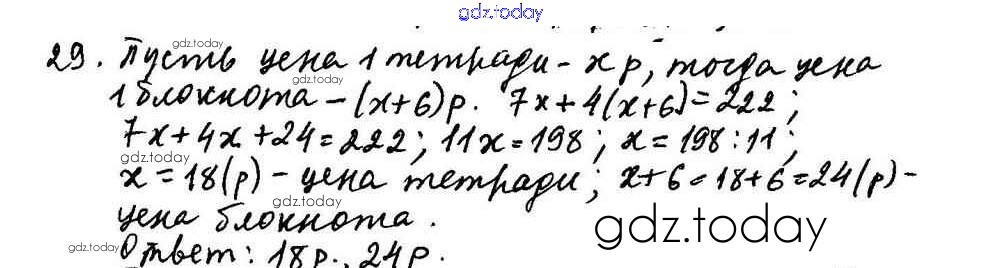 gdz.today
29. Пусть цена 1 тетради - x р, тогда цена
gdz.today
1 блокнота - (x+6) р. 7x+4(x+6)=222;
7x+4x+24=222; 11x=198; x=198:11;
gdz.today
x=18(р) - цена тетради; x+6=18+6=24(р)-
gdz.today
цена блокнота.
gdz.today
gdz.today
Ответ: 18р., 24р.